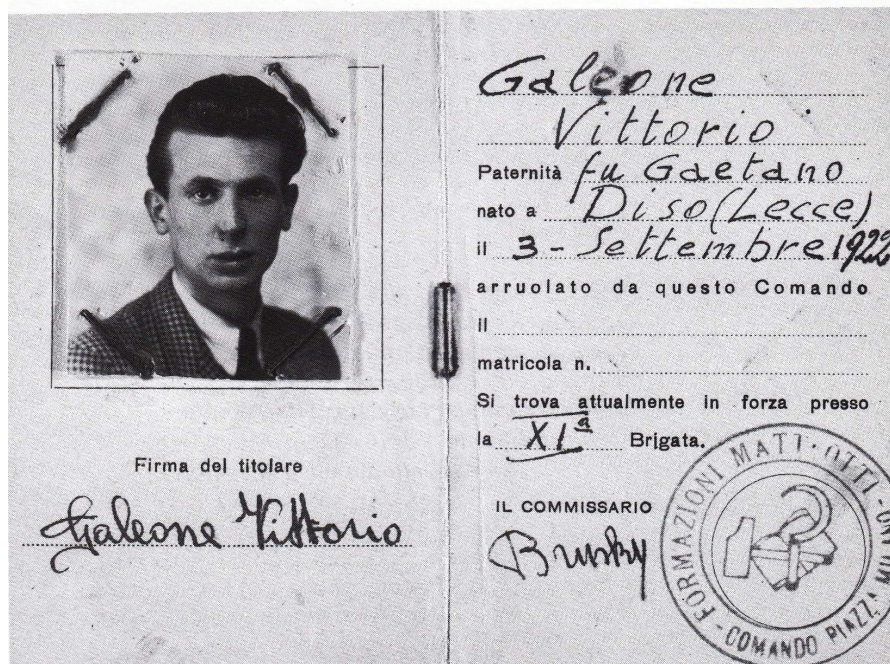 Firma del titolare
Galeone Vittorio
Galeone
Vittorio
Paternità fu Gaetano
nato a Diso (Lecce)
il 3 - Settembre 1922
arruolato da questo Comando
il
matricola n.
Si trova attualmente in forza presso
la XIª Brigata.
IL COMMISSARIO
Brusky
FORMAZIONI MATT·OTTI - COMANDO PIAZZA MILANO -